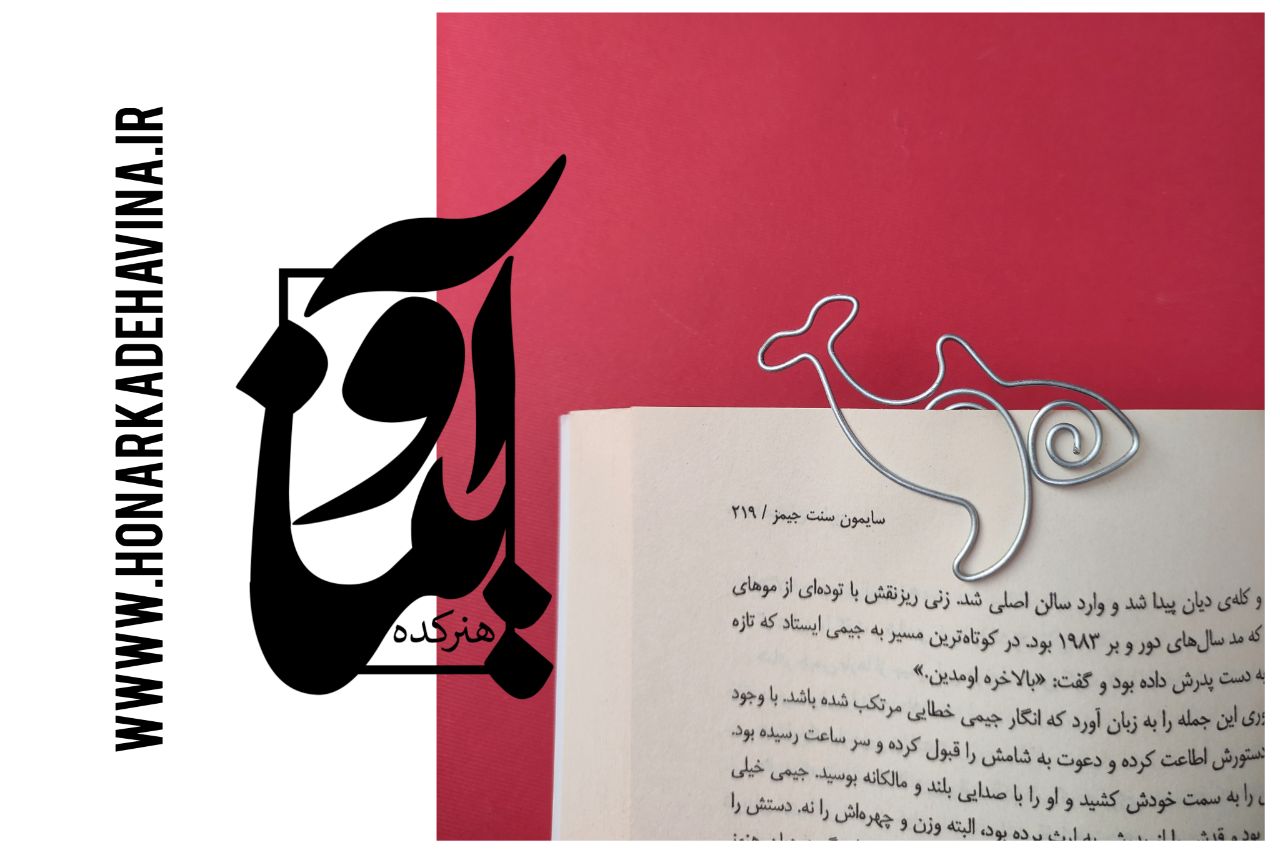 WWW.HONARKADEHAVINA.IR
آوینا
هنرکده
سایمون سنت جیمز / ۲۱۹
و کله‌ی دیان پیدا شد و وارد سالن اصلی شد. زنی ریزنقش با توده‌ای از موهای
که مد سال‌های دور و بر ۱۹۸۳ بود. در کوتاه‌ترین مسیر به جیمی ایستاد که تازه
به دست پدرش داده بود و گفت: «بالاخره اومدین.»
این جمله را به زبان آورد که انگار جیمی خطایی مرتکب شده باشد. با وجود
دستورش اطاعت کرده و دعوت به شامش را قبول کرده و سر ساعت رسیده بود.
را به سمت خودش کشید و او را با صدایی بلند و مالکانه بوسید. جیمی خیلی
بود و قدش را از پدرش به ارث برده بود، البته وزن و چهره‌اش را نه. دستش را